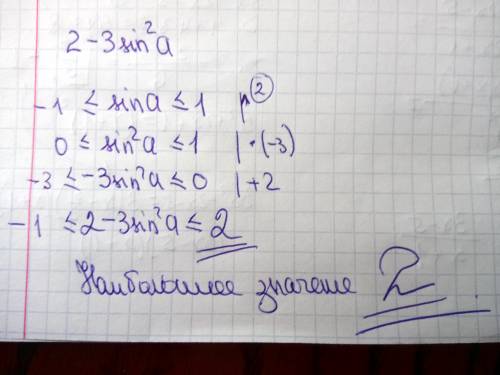 2-3sin²a
-1 ≤ sina ≤ 1 |²
0 ≤ sin²a ≤ 1 | · (-3)
-3 ≤ -3sin²a ≤ 0 | +2
-1 ≤ 2-3sin²a ≤ 2
Наибольшее значение 2.